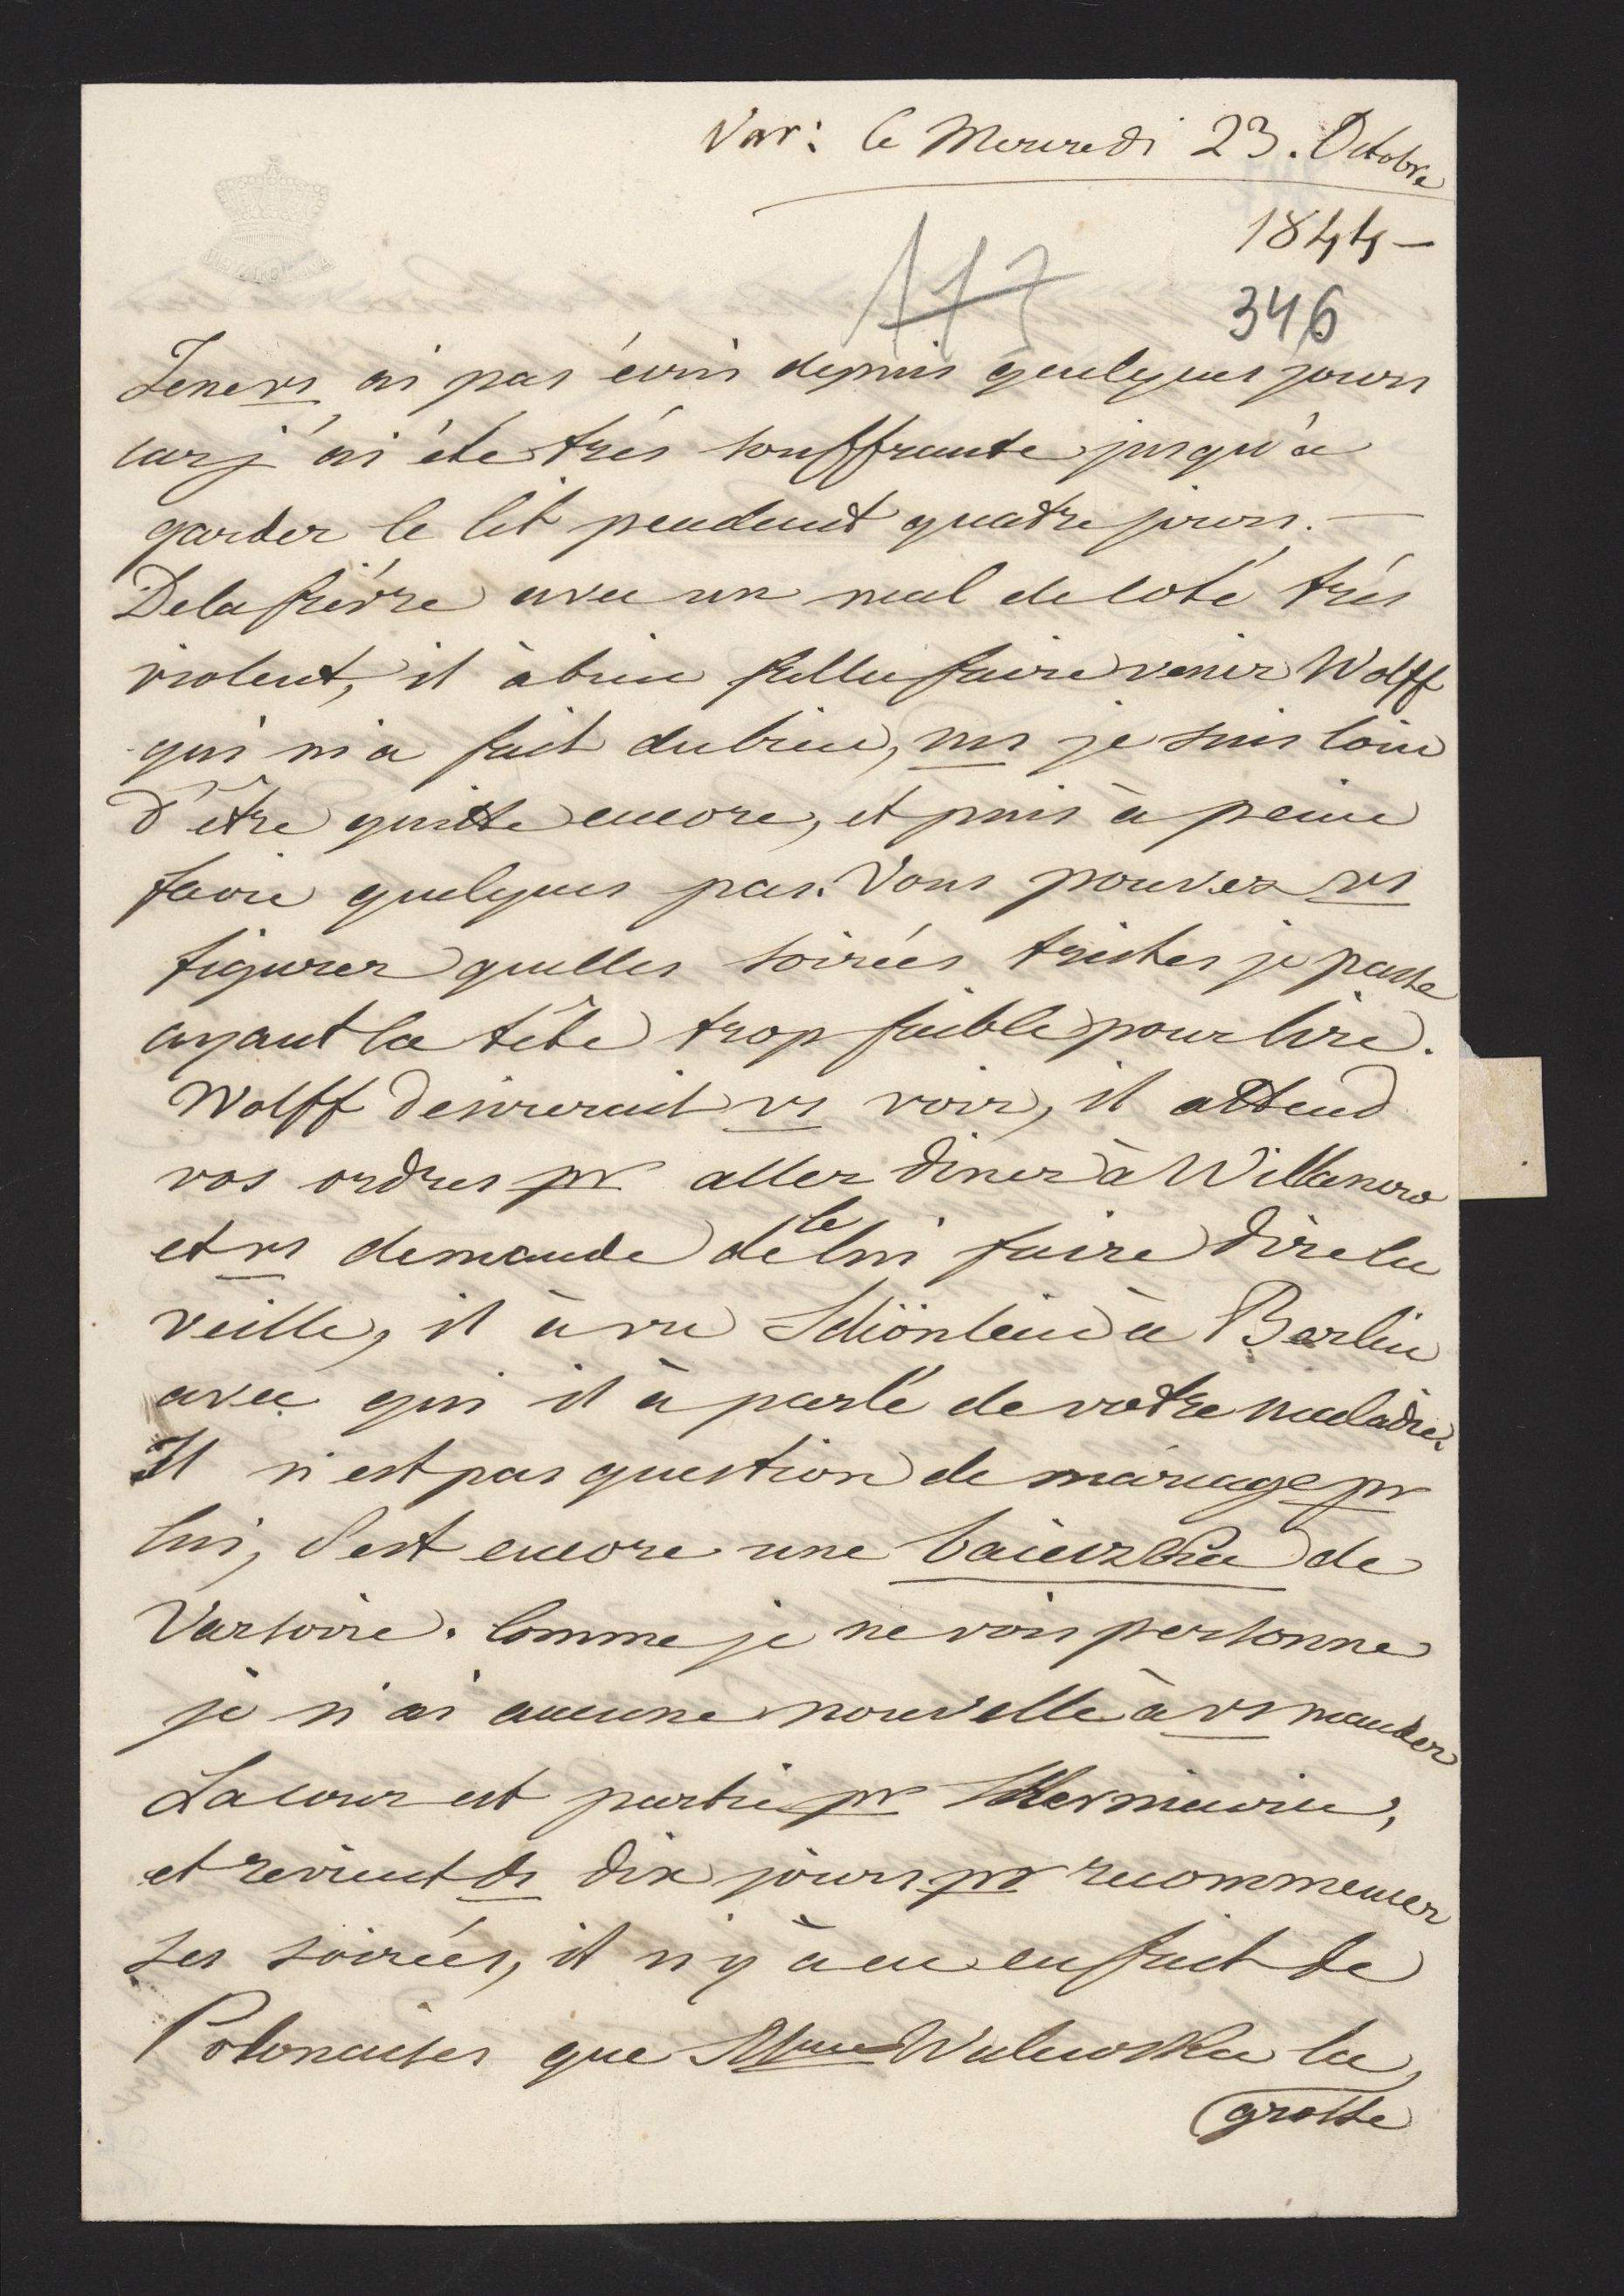 Var: le Mercredi 23. Octobre
1844 —
117
346
Je ne vs ai pas écris depuis quelques jours
car j'ai été très souffrante jusqu'à
garder le lit pendant quatre jours. —
De la fièvre avec un mal de coté très
violent, il à bien fallu faire venir Wolff
qui m'a fait du bien, ms je suis loin
d'être quitte encore, et puis à peine
faire quelques pas. Vous pouvez vs
figurer quelles soirées tristes je passe
ayant la tête trop faible pour lire.
Wolff desirerait vs voir, il attend
vos ordres pr aller diner à Willanow
et vs demande de le lui faire dire la
veille, il à vu Schönlein à Berlin
avec qui il à parlé de votre maladie.
Il n'est pas question de mariage pr
lui, c'est encore une baieczka de
Varsovie. Comme je ne vois personne
je n'ai aucune nouvelle à vs mander
La cour est partie pr Skierniewice,
et revient ds dix jours pr recommencer
ses soirées, il n'y à eu en fait de
Polonaises que Mme Walewska la
grosse